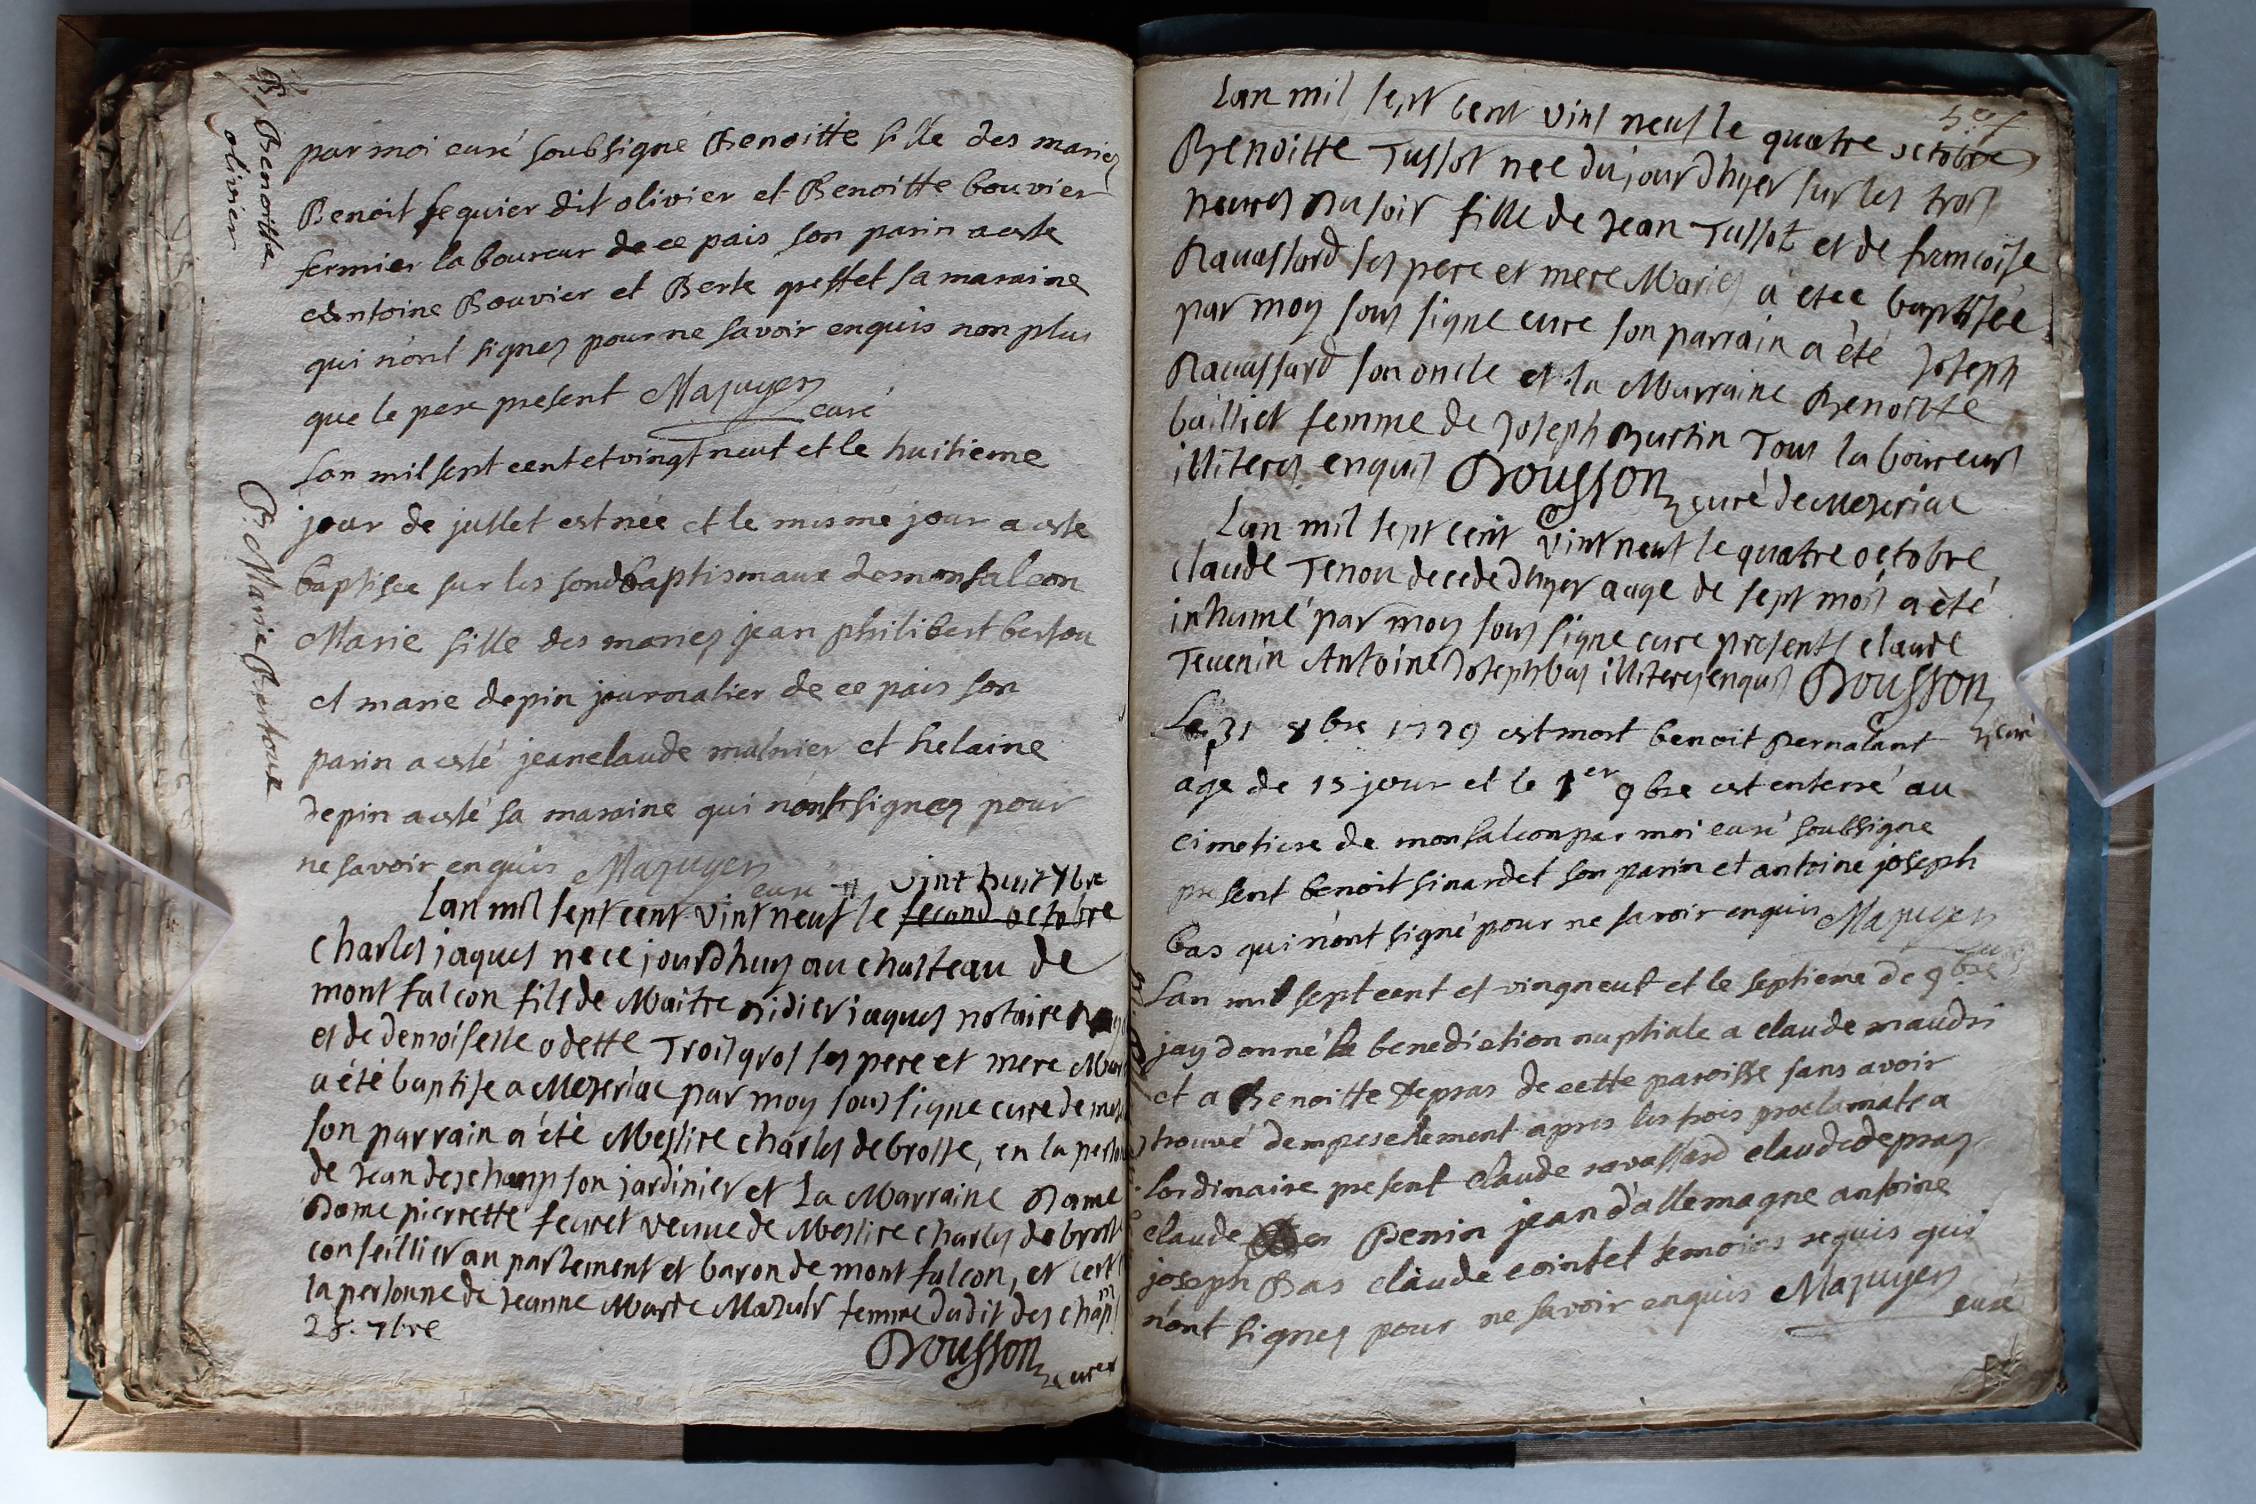 B. Benoitte
olivier
par moi curé soubsigné Benoitte fille des mariez
Benoit sequier dit olivier et Benoitte bouvier
fermier laboureur de ce pais son parin a este
Antoine Bouvier et Berte greffet sa maraine
qui n'ont signez pour ne savoir enquis non plus
que le pere present Mazuyer
curé
B. Marie Bertoux
Lan mil sept cent et vingt neuf et le huitieme
jour de jullet est née et le mesme jour a este
baptisée sur les fond baptismaux de monfalcon
Marie fille des mariez jean philibert bertou
et marie depin journalier de ce pais son
parin a esté jeanclaude mulnier et helaine
depin a esté sa maraine qui n'ont signez pour
ne savoir enquis Mazuyer
curé
vint huit 7bre
Lan mil sept cent vint neuf le second octobre
Charles jaques ne ce jourdhuy au chasteau de
mont falcon fils de Maitre Didier jaques notaire
et de demoiselle odette Troisgros ses pere et mere
a été baptise a Mezeriac par moy sous signe cure de
son parrain a été Messire Charles de brosse, en la
de Jean deschamp son jardinier et La Marraine Dame
Dame pierrette fevret veuve de Messire Charles de
conseillier au parlement et baron de mont falcon, et
la personne de Jeanne Marie Mazuir femme dudit des champ
28. 7bre
Dousson curé
Lan mil sept cent vint neuf le quatre octobre
Benoitte Tussot nee du jour dhyer sur les trois
heures du soir fille de Jean Tussot et de francoise
Ravassard ses pere et mere Mariez a étée baptisée
par moy sous signe cure son parrain a été Joseph
Ravassard son oncle et la Marraine Benoitte
bailliet femme de Joseph Burtin Tous laboureurs
illiteres enquis Dousson curé de Mezeriac
Lan mil sept cent vint neuf le quatre octobre
claude Tenon decede dhyer aage de sept mois a été
inhumé par moy sous signe cure presents claude
Tevenin Antoine Joseph bas illiteres enquis Dousson
curé
Le 31 8bre 1729 est mort benoit Pernalant
age de 15 jour et le 1er 9bre est enterré au
cimetiere de monfalcon par moi curé soubsigne
present benoit sinardet son parin et antoine joseph
bas qui n'ont signé pour ne savoir enquis Mazuyer
curé
Lan mil sept cent et vingneuf et le septieme de 9bre
jay donné la benediction nuptiale a claude maudri
et a Benoitte depras de cette paroisse sans avoir
trouvé dempeschement apres les trois proclamats a
lordinaire present claude ravassard claude depraz
claude Benin jean d'allemagne antoine
joseph Bas claude cointet temoins requis qui
n'ont signez pour ne savoir enquis Mazuyer
curé